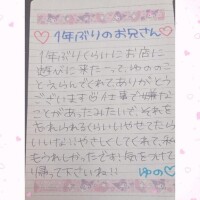 ♡1年ぶりのお兄さん♡
1年ぶりくらいにお店に
遊びに来たーって、ゆのここ
とえらんでくれてありがとう
ございます 仕事で嫌なこ
とがあったみたいで、それを
忘れられるくらいいやせてたら
いいな!!やさしくしてくれて、私
もうれしかったです!気をつけて
帰って下さいね!!
ゆの♡